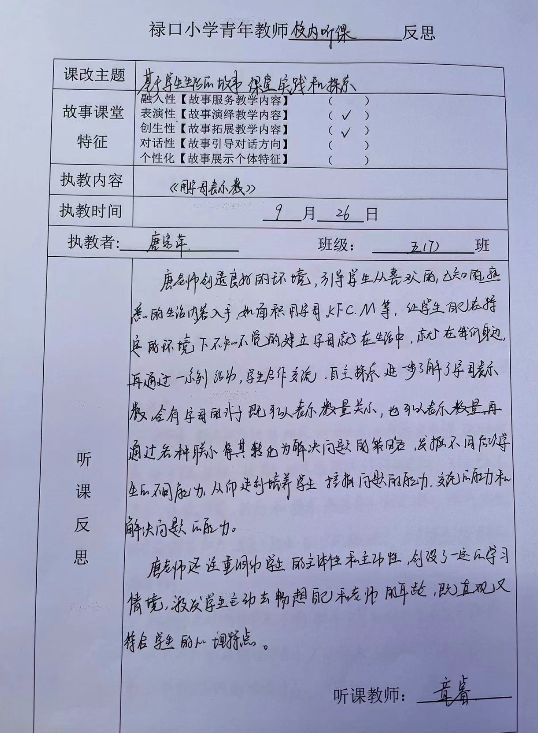 禄口小学青年教师校内听课反思
课改主题 基于学生生活的故事课堂实践和探索
故事课堂
特征
融入性【故事服务教学内容】（ ）
表演性【故事演绎教学内容】（ ✓ ）
创生性【故事拓展教学内容】（ ✓ ）
对话性【故事引导对话方向】（ ）
个性化【故事展示个体特征】（ ）
执教内容 《用字母表示数》
执教时间 9月26日
执教者: 唐 班级: 五(7)班
听课反思
唐老师创造良好的环境，引导学生从喜欢的，已知的，熟
悉的生活内容入手，如面积用字母KFC.M等，使学生自己在特
定的环境下不知不觉的建立字母就在生活中，就在我们身边，
再通过一系列活动，学生合作交流，自主探索进一步了解了字母表示
数，含有字母的式子既可以表示数量关系，也可以表示数量，再
通过各种联系将其转化为解决问题的策略，发掘不同层次学
生的不同能力，从而达到培养学生挖掘问题的能力，交流的能力和
解决问题的能力。
唐老师还注重调动学生的主体性和主动性，创设了一定的学习
情境，激发学生主动去畅想自己和老师的年龄，既直观又
符合学生的心理特点。
听课教师: 章睿